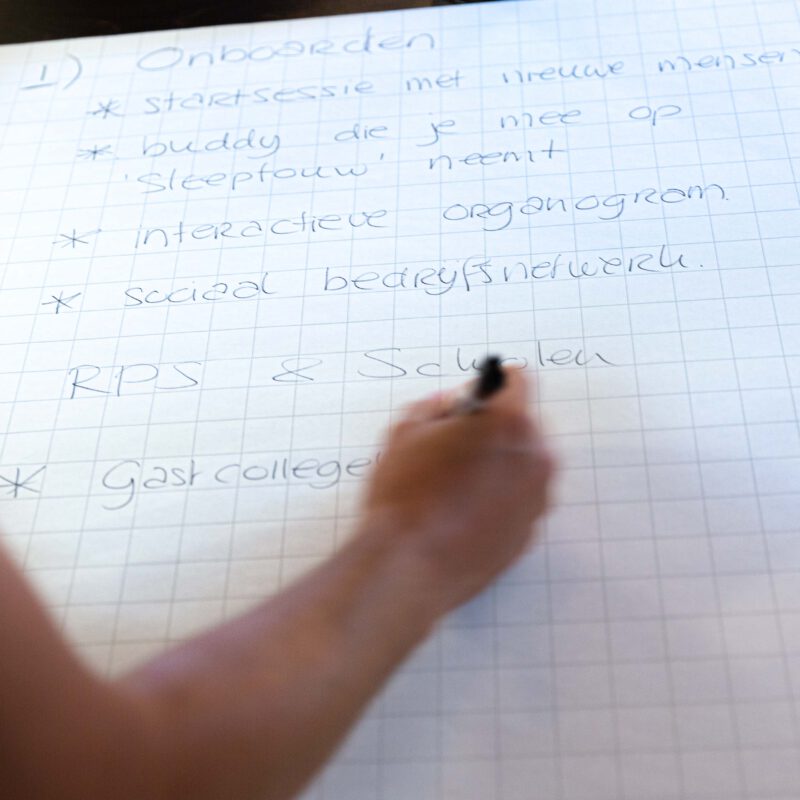 1) Onboarden
* startsessie met nieuwe mensen
* buddy die je mee op
'sleeptouw' neemt
* interactieve organogram.
* sociaal bedrijfsnetwerk.
RPS & Scholen
* Gastcollege